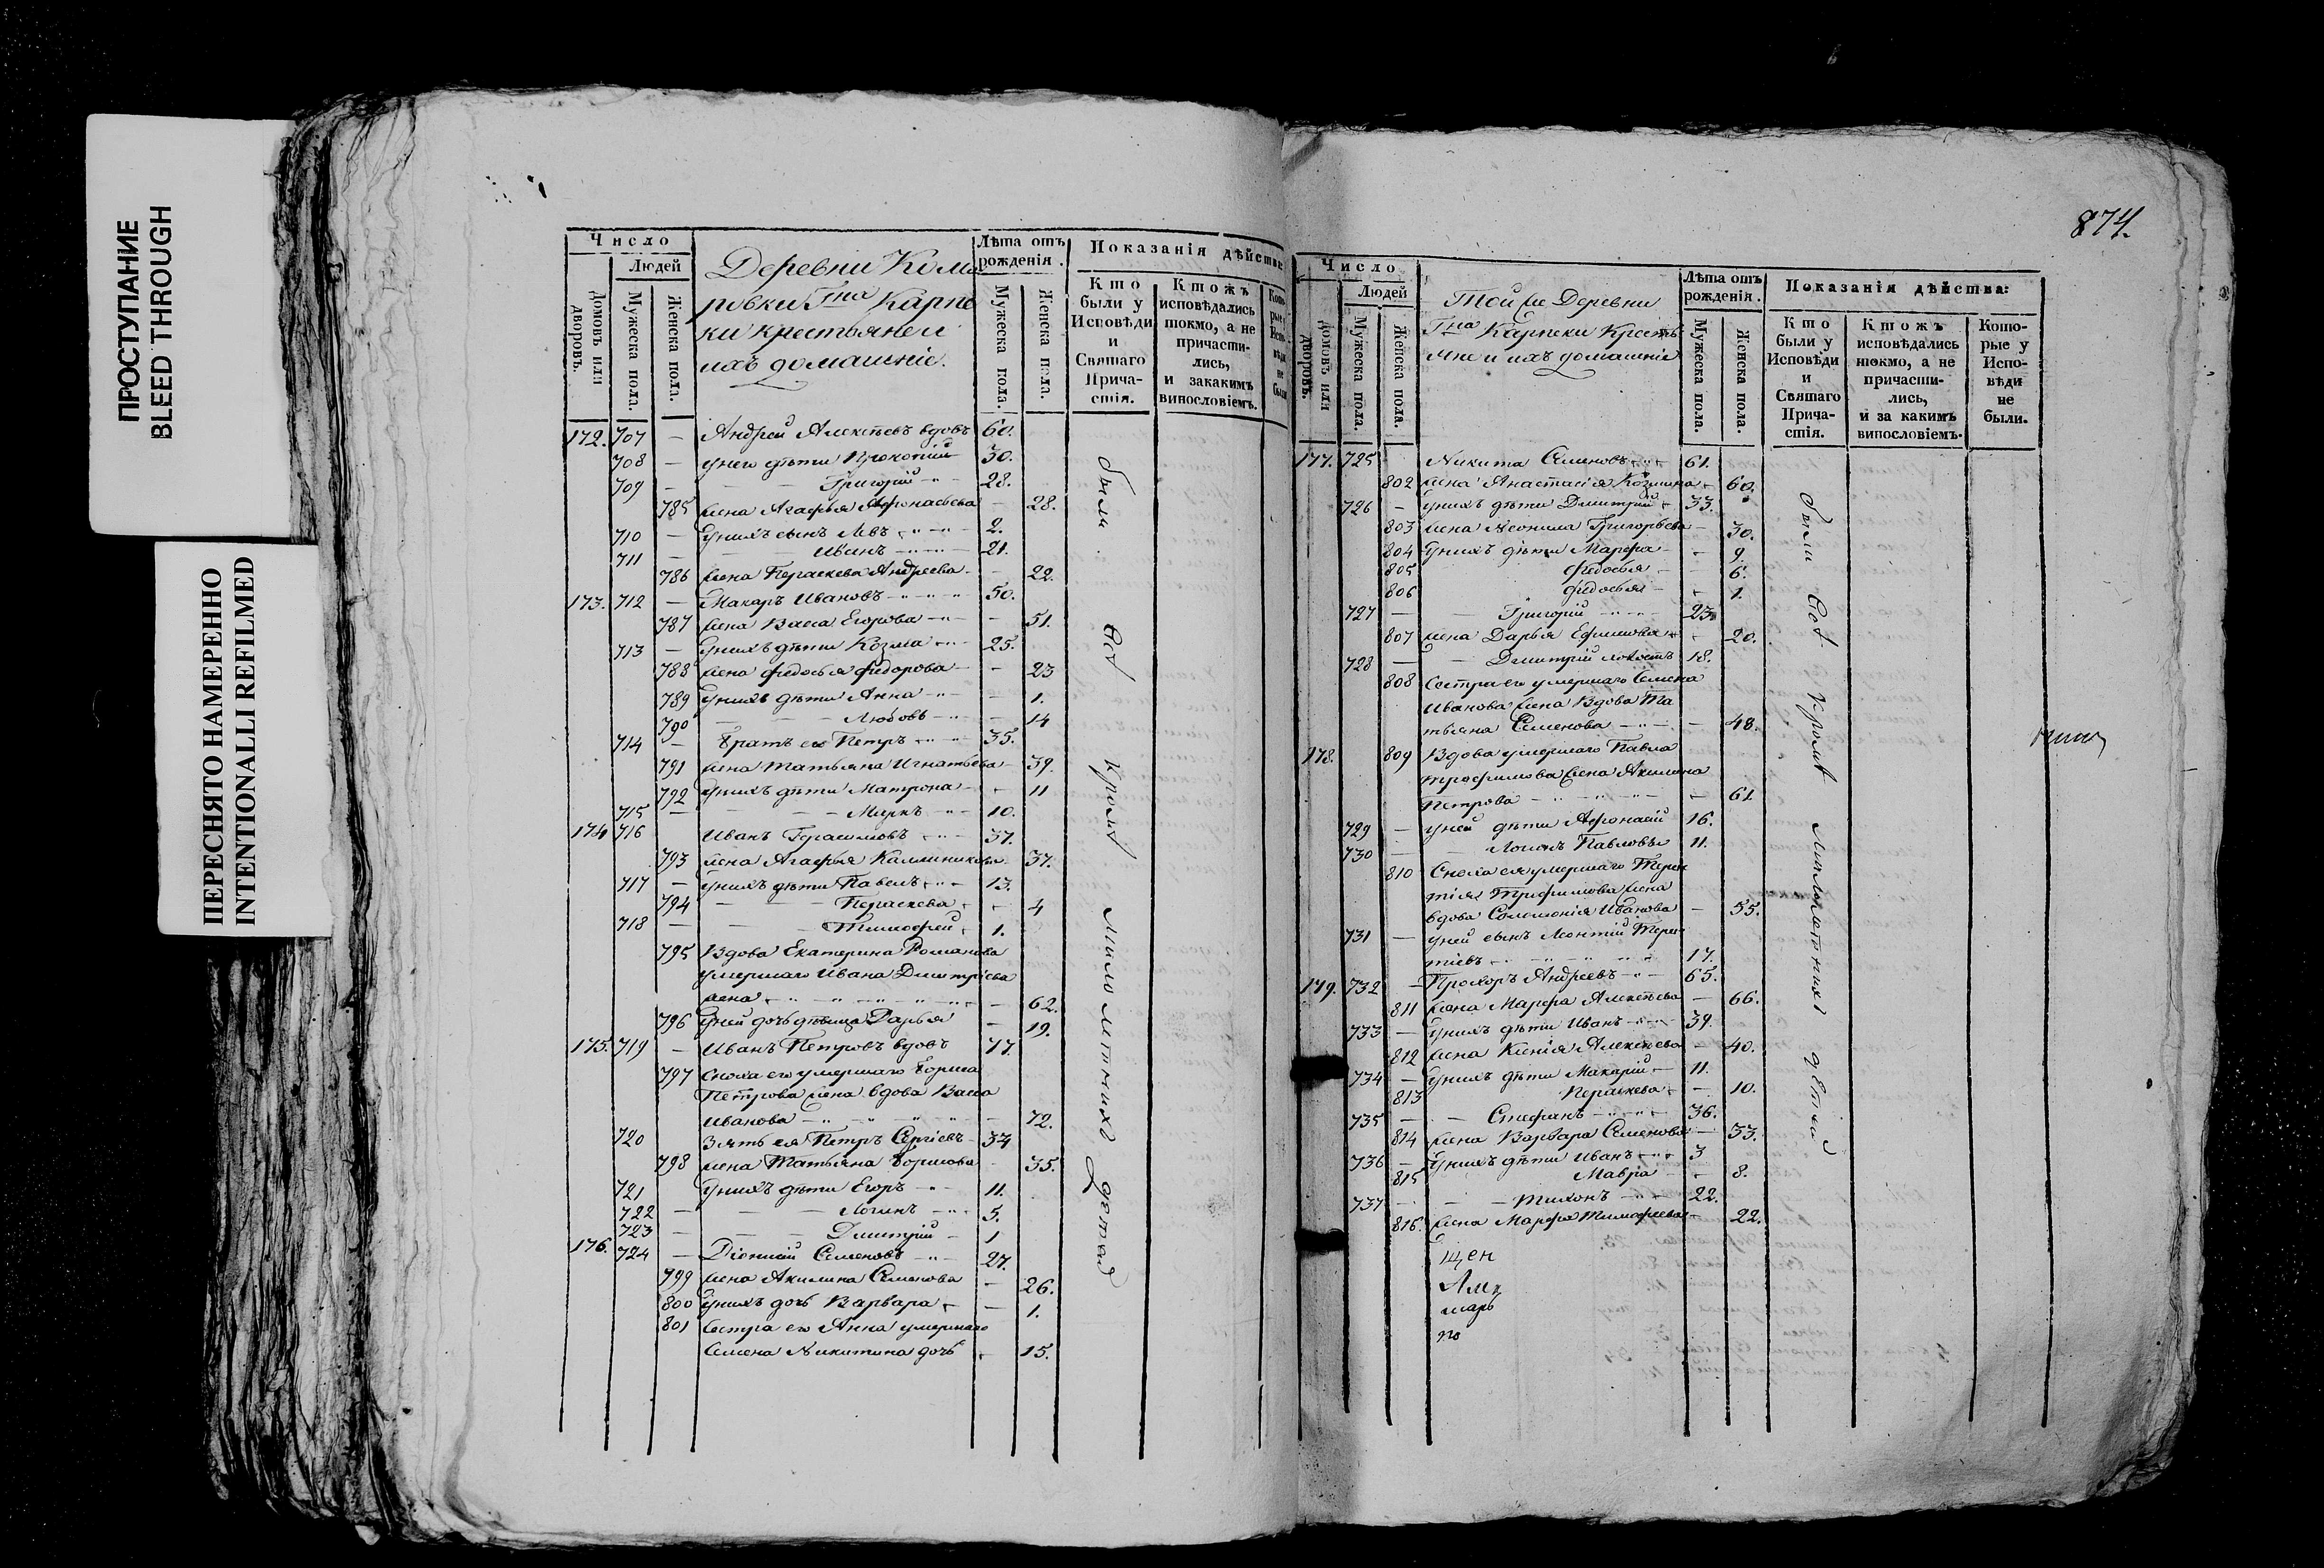 ПРОСТУПАНИЕ
BLEED THROUGH
ПЕРЕСНЯТО НАМЕРЕННО
INTENTIONALLI REFILMED
Число
Людей
Домовъ или дворовъ.
Мужеска пола.
Женска пола.
Деревни
ровки Гна Карпе
ки крестьяне и
ихъ домашніе.
Лѣта отъ рожденія.
Мужеска пола.
Женска пола.
Показанія дѣйства:
Кто были у Исповѣди и Святаго Прича-стія.
Ктожъ исповѣдались токмо, а не причасти-лись, и закакимъ винословіемъ.
172. 707 — Андрей Алексѣевъ вдовъ 60.
708 — у него дѣти Прокопий 30.
709 — Григорий 28.
785 жена Агафья Афонасьева — 28.
710 — У нихъ сынъ Левъ 2.
711 — Иванъ 21.
786 жена Пераскева Андреева — 22.
173. 712 — Макаръ Ивановъ 50.
787 жена Васса Егорова — 51.
713 — У нихъ дѣти Козма 25.
788 жена Федосья Федорова — 23
789 У нихъ дѣти Анна — 1.
790 — Любовь — 14
714 — Братъ его Петръ 35.
791 жена Татьяна Игнатьева — 39.
792 У нихъ дѣти Матрона — 11
715 — Маркъ 10.
174 716 Иванъ Герасимовъ 37.
793 жена Агафья Каллиникова 37.
717 — У нихъ дѣти Павелъ 13.
794 — Пераскева — 4
718 — Тимофей 1.
795 Вдова Екатерина Романова
умершаго Ивана Дмитріева
жена — 62.
796 У ней дочь девица Дарья — 19.
175. 719 — Иванъ Петровъ вдовъ 77.
797 Сноха его умершаго Бориса
Петрова жена вдова Васса
Иванова — 72.
720 Зять ея Петръ Сергіевъ 34
798 жена Татьяна Борисова 35.
721 У нихъ дѣти Егоръ 11.
722 — Логинъ 5.
723 — Дмитрій 1
176. 724 — Діонисій Семеновъ 27.
799 жена Акилина Семенова — 26.
800 У нихъ дочь Варвара — 1.
801 Сестра его Анна умершаго
Семена Никитина дочь 15.
были всѣ кромѣ малолетнихъ детей
874.
Число
Людей
Домовъ или дворовъ.
Мужеска пола.
Женска пола.
Той же Деревни
Гна Карпеки Кресть
яне и ихъ домашніе
Лѣта отъ рожденія.
Мужеска пола.
Женска пола.
Показанія дѣйства:
Кто были у Исповѣди и Святаго Прича-стія.
Ктожъ исповѣдались токмо, а не причасти-лись, и за какимъ винословіемъ.
Кото-рые у Испо-вѣди не были.
177. 725 Никита Семеновъ 61.
802 жена Анастасія Козмина 60.
726 — У нихъ дѣти Дмитрий 33.
803 жена Неонила Григорьева — 30.
804 У нихъ дѣти Марфа — 9
805 Федосья — 6.
806 Федосья — 1.
727 — Григорій 23
807 жена Дарья Ефимова 20.
728 — Дмитрій холостъ 18.
808 Сестра его умершаго Семена
Иванова жена Вдова Та
тьяна Семенова — 48.
178. 809 Вдова умершаго Павла
Трофимова жена Акилина
Петрова — 61
729 — у ней дѣти Афонасій 16.
730 — Павловы 11.
810 Сноха ея умершаго Терен
тія Трофимова жена
вдова Соломонія Иванова — 55.
731 — У ней сынъ Леонтій Терен
тіевъ 17.
179. 732 — Прохоръ Андреевъ 65.
811 жена Марфа Алексѣева — 66.
733 — У нихъ дѣти Иванъ 39.
812 жена Ксенія Алексѣева — 40.
734 — У нихъ дѣти Макарій 11.
813 Пераскева — 10.
735 — Стефанъ 36.
814 жена Варвара Семенова — 33.
736 — У нихъ дѣти Иванъ 3
815 Мавра — 8.
737 — Тихонъ 22.
816. жена Марфа Тимофеева — 22.
щен
были всѣ кромѣ малолетнихъ дѣтей